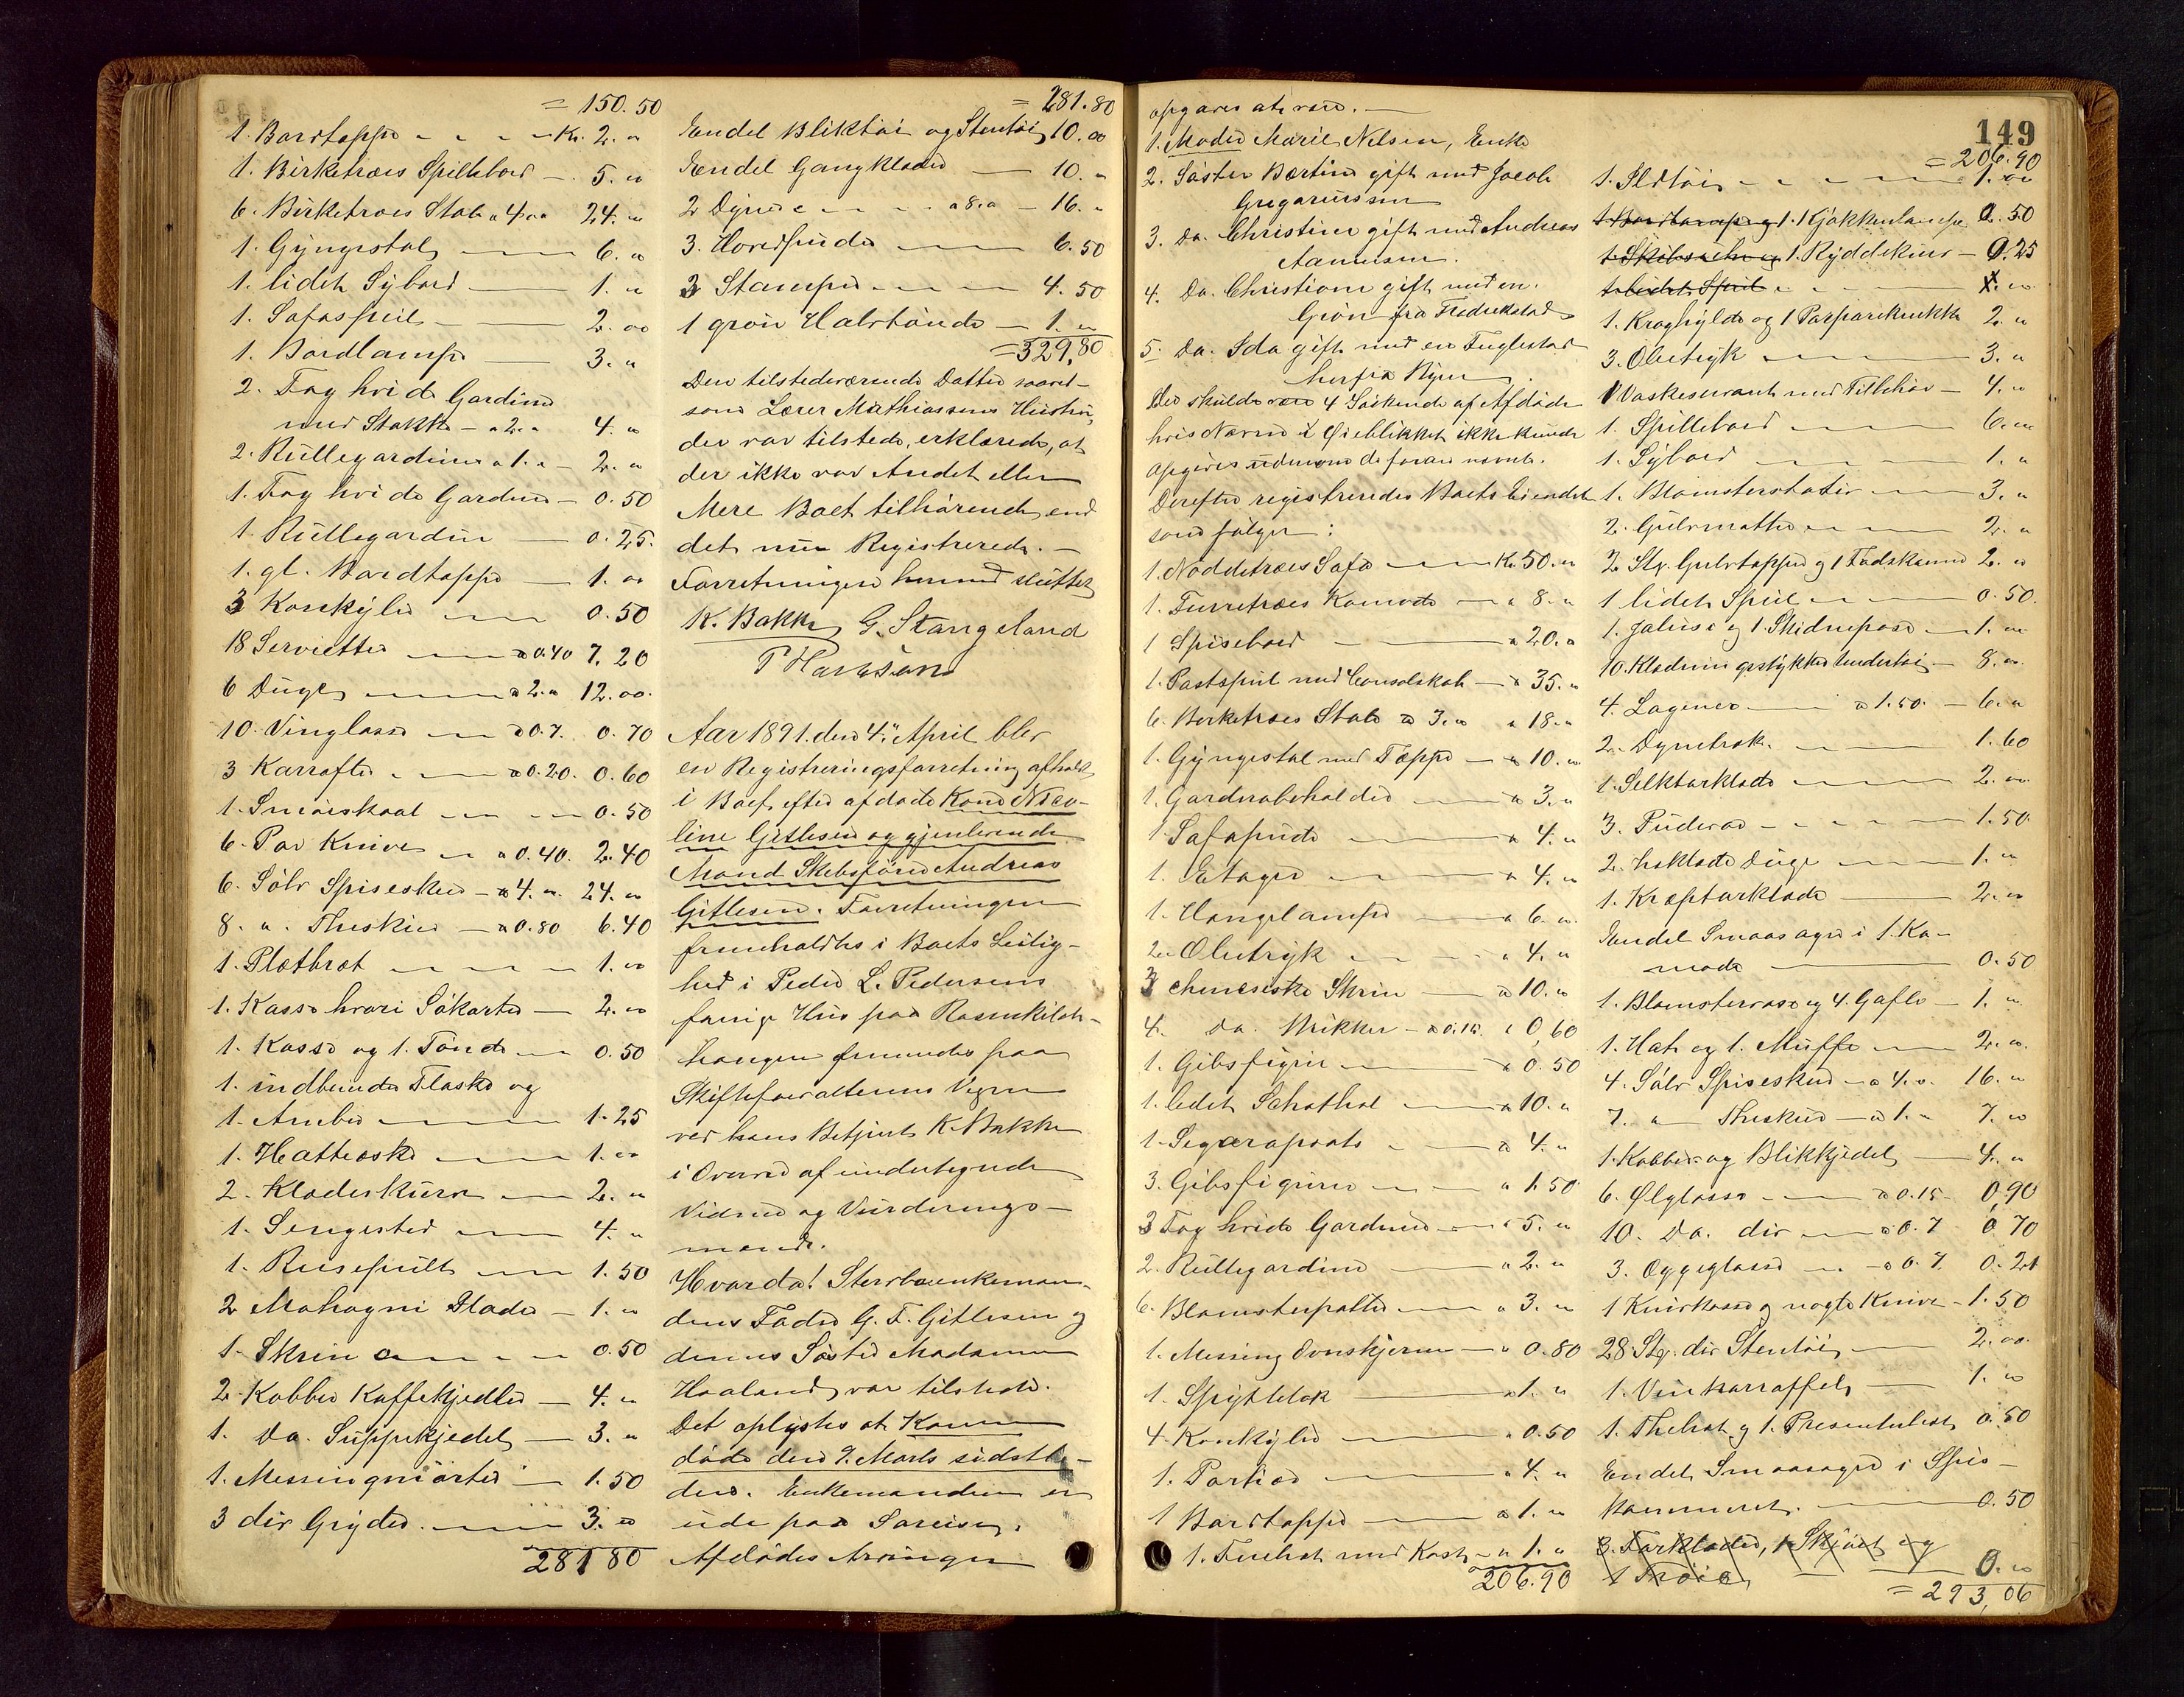 = 150.50
1. Bordteppe - - - - Kr. 2. "
1. Birketræes Spillebord - 5. "
6. Birketræes Stole a 4 " 24. "
1. Gyngestol 6. "
1. lidet Sybord 1. "
1. Sofaspeil 2. oo
1. Bordlampe 3. "
2. Fag hvide Gardiner
med Stokke - a 2. " 4. "
2. Rullegardiner a 1. " - 2. "
1. Fag hvide Gardiner - 0.50
1. Rullegardin - 0.25.
1. gl. Bordteppe - 1. oo
3 Konkylier 0.50
18 Servietter a 0.40 7.20
6 Duger a 2. " 12.oo.
10. Vinglasse a 0.7. 0.70
3 Karrafler a 0.20. 0.60
1. Smørskaal 0.50
6. Par Knive a 0.40. 2.40
6. Sølv Spiseskeer - a 4. " 24. "
8. " Theskeer - a 0.80 6.40
1. Pletbret 1. oo
1. Kasse hvori Søkarter - 2. oo
1. Kasse og 1. Tønde 0.50
1. indbunden Flaske og
1. Amber 1.25
1. Hatteæske 1. oo
2. Klædeskurve 2. "
1. Sengested 4. "
1. Reisepult 1.50
2 Mahogni Plader - 1. "
1. Skrin 0.50
2 Kobber Kaffekjedler - 4. "
1. Do. Suppekjedel - 3. "
1. Messingmorter - 1.50
3 div Gryder. 3. "
281 80
= 281.80
Endel Bliktøi og Stentøi 10.oo
Endel Gangklæder - 10. "
2 Dyner a 8. " - 16. "
3. Hovedpuder 6.50
3 Stamper 4.50
1 grøn Halvtønde - 1. "
= 329,80
Den tilstedeværende Datter svaret-
som Lærer Mathiassens Hustru,
der var tilstede, erklærede, at
der ikke var Andet eller
Mere Boet tilhørende, end
det nu Registrerede. -
Forretningen hermed sluttet
K. Bakke G. Stangeland
P Hansson
Aar 1891. den 4de April blev
en Registreringsforretning afholdt
i Boet efter afdøde Kone Nico-
line Gitlesen og gjenlevende
Mand Skibsfører Andreas
Gitlesen. Forretningen
fremholdtes i Boets Leilig-
hed i Peder L. Pedersens
forrige Hus paa Rosenkilde-
haugen fremmedes paa
Skifteforvalterens Vegne
ved hans Betjent K. Bakke
i Overvær af undertegnede
Vidner og Vurderings-
mænd.
Hvorda! Stervboenkeman-
dens Fader G. F. Gitlesen og
dennes Søster Madamme
Haaland var tilstede.
Det oplystes at Konen
døde den 7. Marts sidstle-
den. Enkemanden er
ude paa Søreise.
Afdødes Arvinger
opgaves at være. -
1. Moder Marie Nelsen, Enke
2. Søster Bertine gift med Jacob
Gregoriussen
3. Do. Christine gift med Andreas
Aanensen.
4. Do. Christiane gift med en
Grøn fra Fredrikstad
5. Do. Ida gift med en Fuglestad
herfra Byen
Der skulde være 4 Søskende af Afdøde
hvis Navne i Øieblikket ikke kunde
opgives udenom de foran nævnte.
Derefter registreredes Boets Eiendele
som følger:
1. Nøddetræes Sofa Kr. 50. "
1. Furretræes Komode " 8. "
1 Spisebord " 20. "
1. Postspeil med Consolskab - " 35. "
6. Birketræes Stole a 3. " " 18. "
1. Gyngestol med Teppe - " 10. "
1. Garderobeholder " 3. "
1. Sofapude " 4. "
1. Etager " 4. "
1. Hængelampe " 6. "
2. Oletryk " 4. "
3 chinesiske Skrin " 10. "
4. Do. Brikker - a 0.15. " 0,60
1. Gibsfigur " 0.50
1. lidet Schathol " 10. "
1. Segaropsats " 4. "
3. Gibsfigurer " 1.50
3 Fag hvide Gardiner " 5. "
2. Rullegardiner " 2. "
6. Blomsterpotter " 3. "
1. Messing Ovnskjerm " 0.80
1. Spyttebak " 1. "
4. Konkylier " 0.50
1. Portier " 4. "
1 Bordteppe " 1. "
1. Feiebret med Kost " 1. "
206.90
149
= 206.90
1. Ildtøi 1. oo
1 Bordlampe og 1. 1 Kjøkkenlampe 0.50
1. Ryddekurv - 0.25
1. lidet Speil
1. Kraghylde og 1 2. "
3. Oletryk 3. "
1 Vaskeservant med Tilbehør - 4. "
1. Spillebord 6. "
1. Sybord 1. "
1. Blomsterstativ 3. "
2. Gulvmatter 2. "
2 Stg. Gulvtepper og 1 Fodskammel 2. "
1 lidet Speil 0.50.
1. Jalusi og 1. Skidenpose - 1. "
10. Klædningsstykker Undertøi - 8. "
4. Lagener a 1.50. - 6. "
2. Dynetræk. 1.60
1. Silketørklæde 2. "
3. Pudevar 1.50
2. heklede Duge 1. "
1. Kreptørklæde 2. "
Endel Smaasager i 1. Ko-
mode 0.50
1. Blomstervase og 4. Gafler - 1. "
1. Hat og 1. Muffe 2. "
4. Sølv Spiseskeer - a 4. " 16. "
7. " Theskeer - a 1. " 7. "
1. Kobber og Blikkjedel - 4. "
6. Ølglasse a 0.15 - 0,90
10. Do. div a 0.7 0 70
3. Æggeglasse a 0.7 0.21
1 Knivkasse og nogle Knive - 1.50
28 Stg. div Stentøi 2.oo
1. Vinkarraffel 1. "
1. Thebret og 1. Presenterbret 0.50
Endel Smaasager i Spis-
kammeret. 0.50
3. Forklæder, 1. Skjørt og
1 Trøie 0. "
= 293,06